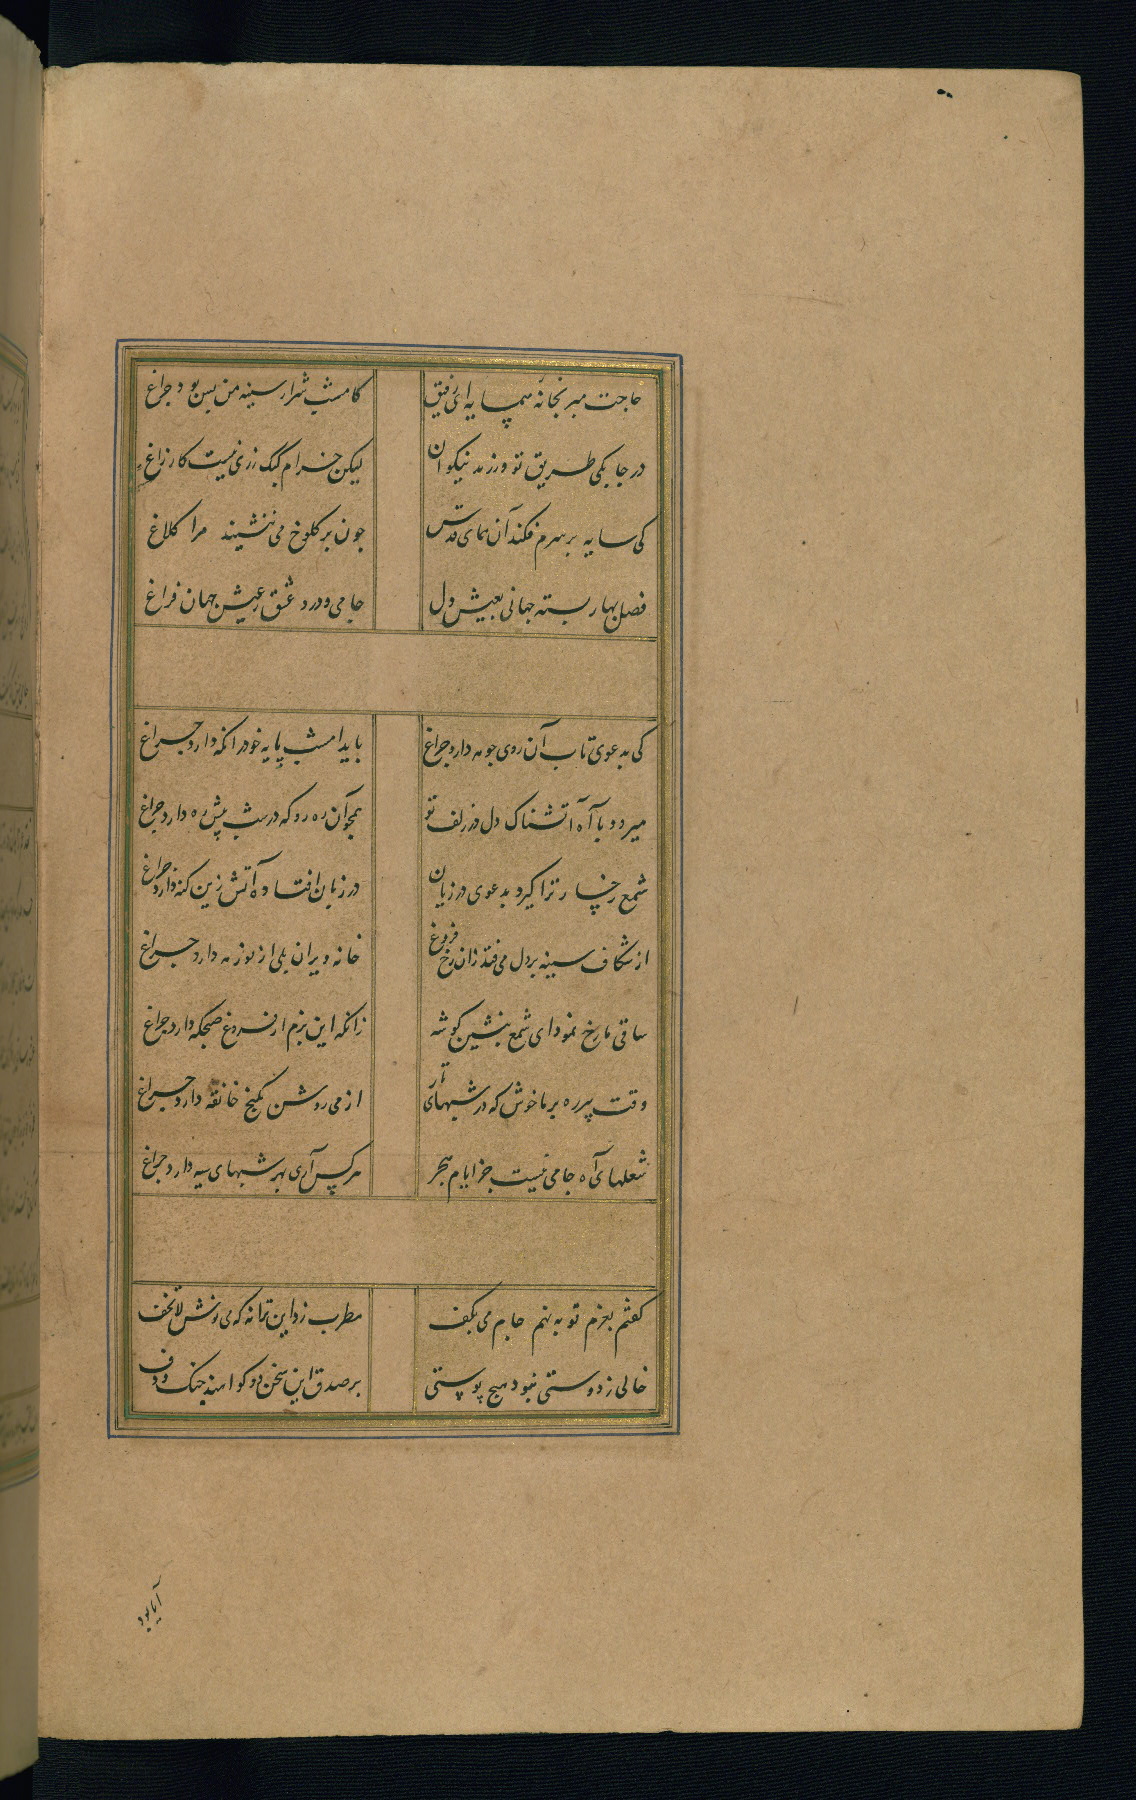 حاجت مبر بخانهٔ همسایه ای رفیق کامشب شرار سینه من بس بود چراغ
در چابکی طریق تو ورزند نیکوان لیکن خرام کبک دری نیست کار زاغ
کی سایه بر سرم فکند آن همای قدس چون بر کلوخ می ننشیند مرا کلاغ
فصل بهار بسته جهانی بعیش دل جامی و درد عشق ز عیش جهان فراغ
کی به دعوی تاب آن روی چو مه دارد چراغ باید امشب پایه خود را نگه دارد چراغ
میرود با آه آتشناک دل در زلف تو همچو آن ره رو که در شب پیش ره دارد چراغ
شمع رخسار ترا گیرد به دعوی در زبان در زبان افتاده آتش زین گنه دارد چراغ
از شکاف سینه بر دل می فتد زان رخ فروغ خانه ویران بلی از نور مه دارد چراغ
ساقی ما رخ نمود ای شمع بنشین گوشه زانکه این بزم از فروغ صبحگه دارد چراغ
وقت پیر ره بر ما خوش که در شبهای تار از می روشن بکنج خانقه دارد چراغ
شعلهای آه جامی نیست جز ایام هجر هر کس آری بهر شبهای سیه دارد چراغ
گفتم بعزم توبه نهم جام می بکف مطرب زد این ترانه که می نوش لاتخف
خالی ز دوستی نبود هیچ پوستی بر صدق این سخن دو گواهند چنگ و دف
آیا بود